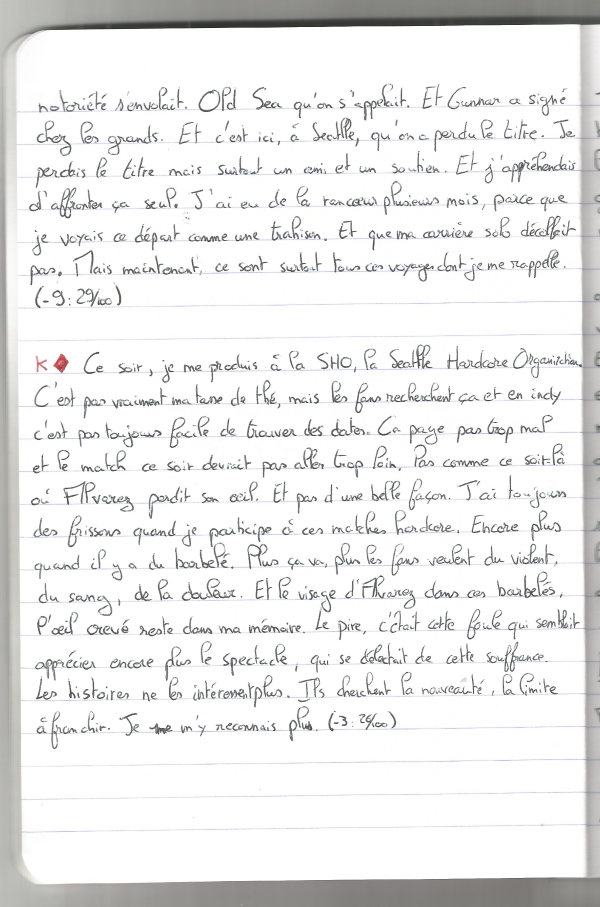 notoriété s'envolait. Old Sea qu'on s'appelait. Et Gunnar a signé
chez les grands. Et c'est ici, à Seattle, qu'on a perdu le titre. Je
perdais le titre mais surtout un ami et un soutien. Et j'appréhendais
d'affronter ça seul. J'ai eu de la rancoeur plusieurs mois, parce que
je voyais ce départ comme une trahison. Et que ma carrière solo décollait
pas. Mais maintenant, ce sont surtout tous ces voyages dont je me rappelle.
(-9 : 29/100)
K♦ Ce soir, je me produis à la SHO, la Seattle Hardcore Organization.
C'est pas vraiment ma tasse de thé, mais les fans recherchent ça et en indy
c'est pas toujours facile de trouver des dates. Ca paye pas trop mal
et le match ce soir devrait pas aller trop loin. Pas comme ce soir-là
où Alvarez perdit son oeil. Et pas d'une belle façon. J'ai toujours
des frissons quand je participe à ces matches hardcore. Encore plus
quand il y a du barbelé. Plus ça va, plus les fans veulent du violent,
du sang, de la douleur. Et le visage d'Alvarez dans ces barbelés,
l'oeil crevé reste dans ma mémoire. Le pire, c'était cette foule qui semblait
apprécier encore plus le spectacle, qui se délectait de cette souffrance.
Les histoires ne les intéressent plus. Ils cherchent la nouveauté, la limite
à franchir. Je m'y reconnais plus. (-3 : 26/100)